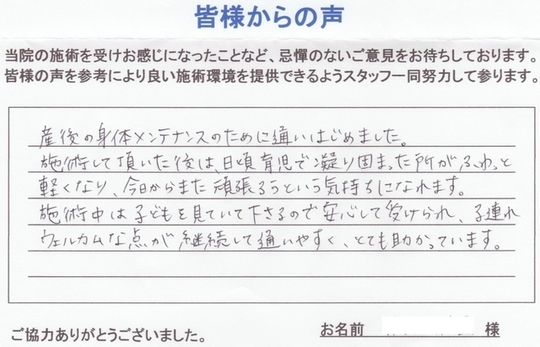 皆様からの声
当院の施術を受けお感じになったことなど、忌憚のないご意見をお待ちしております。
皆様の声を参考により良い施術環境を提供できるようスタッフ一同努力して参ります。
産後の身体メンテナンスのために通いはじめました。
施術して頂いた後は、日頃育児で凝り固まった所がふわっと
軽くなり、今日からまた頑張ろうという気持ちになれます。
施術中は子どもを見ていて下さるので安心して受けられ、子連れ
ウェルカムな点が継続して通いやすく、とても助かっています。
お名前 様
ご協力ありがとうございました。